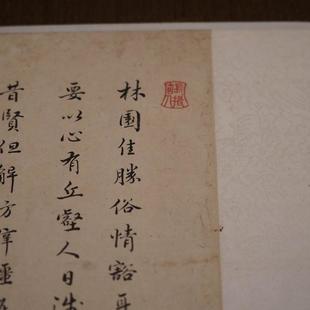 林園佳勝俗情豁耳
要以心有丘壑人日涉
昔賢但解方宰